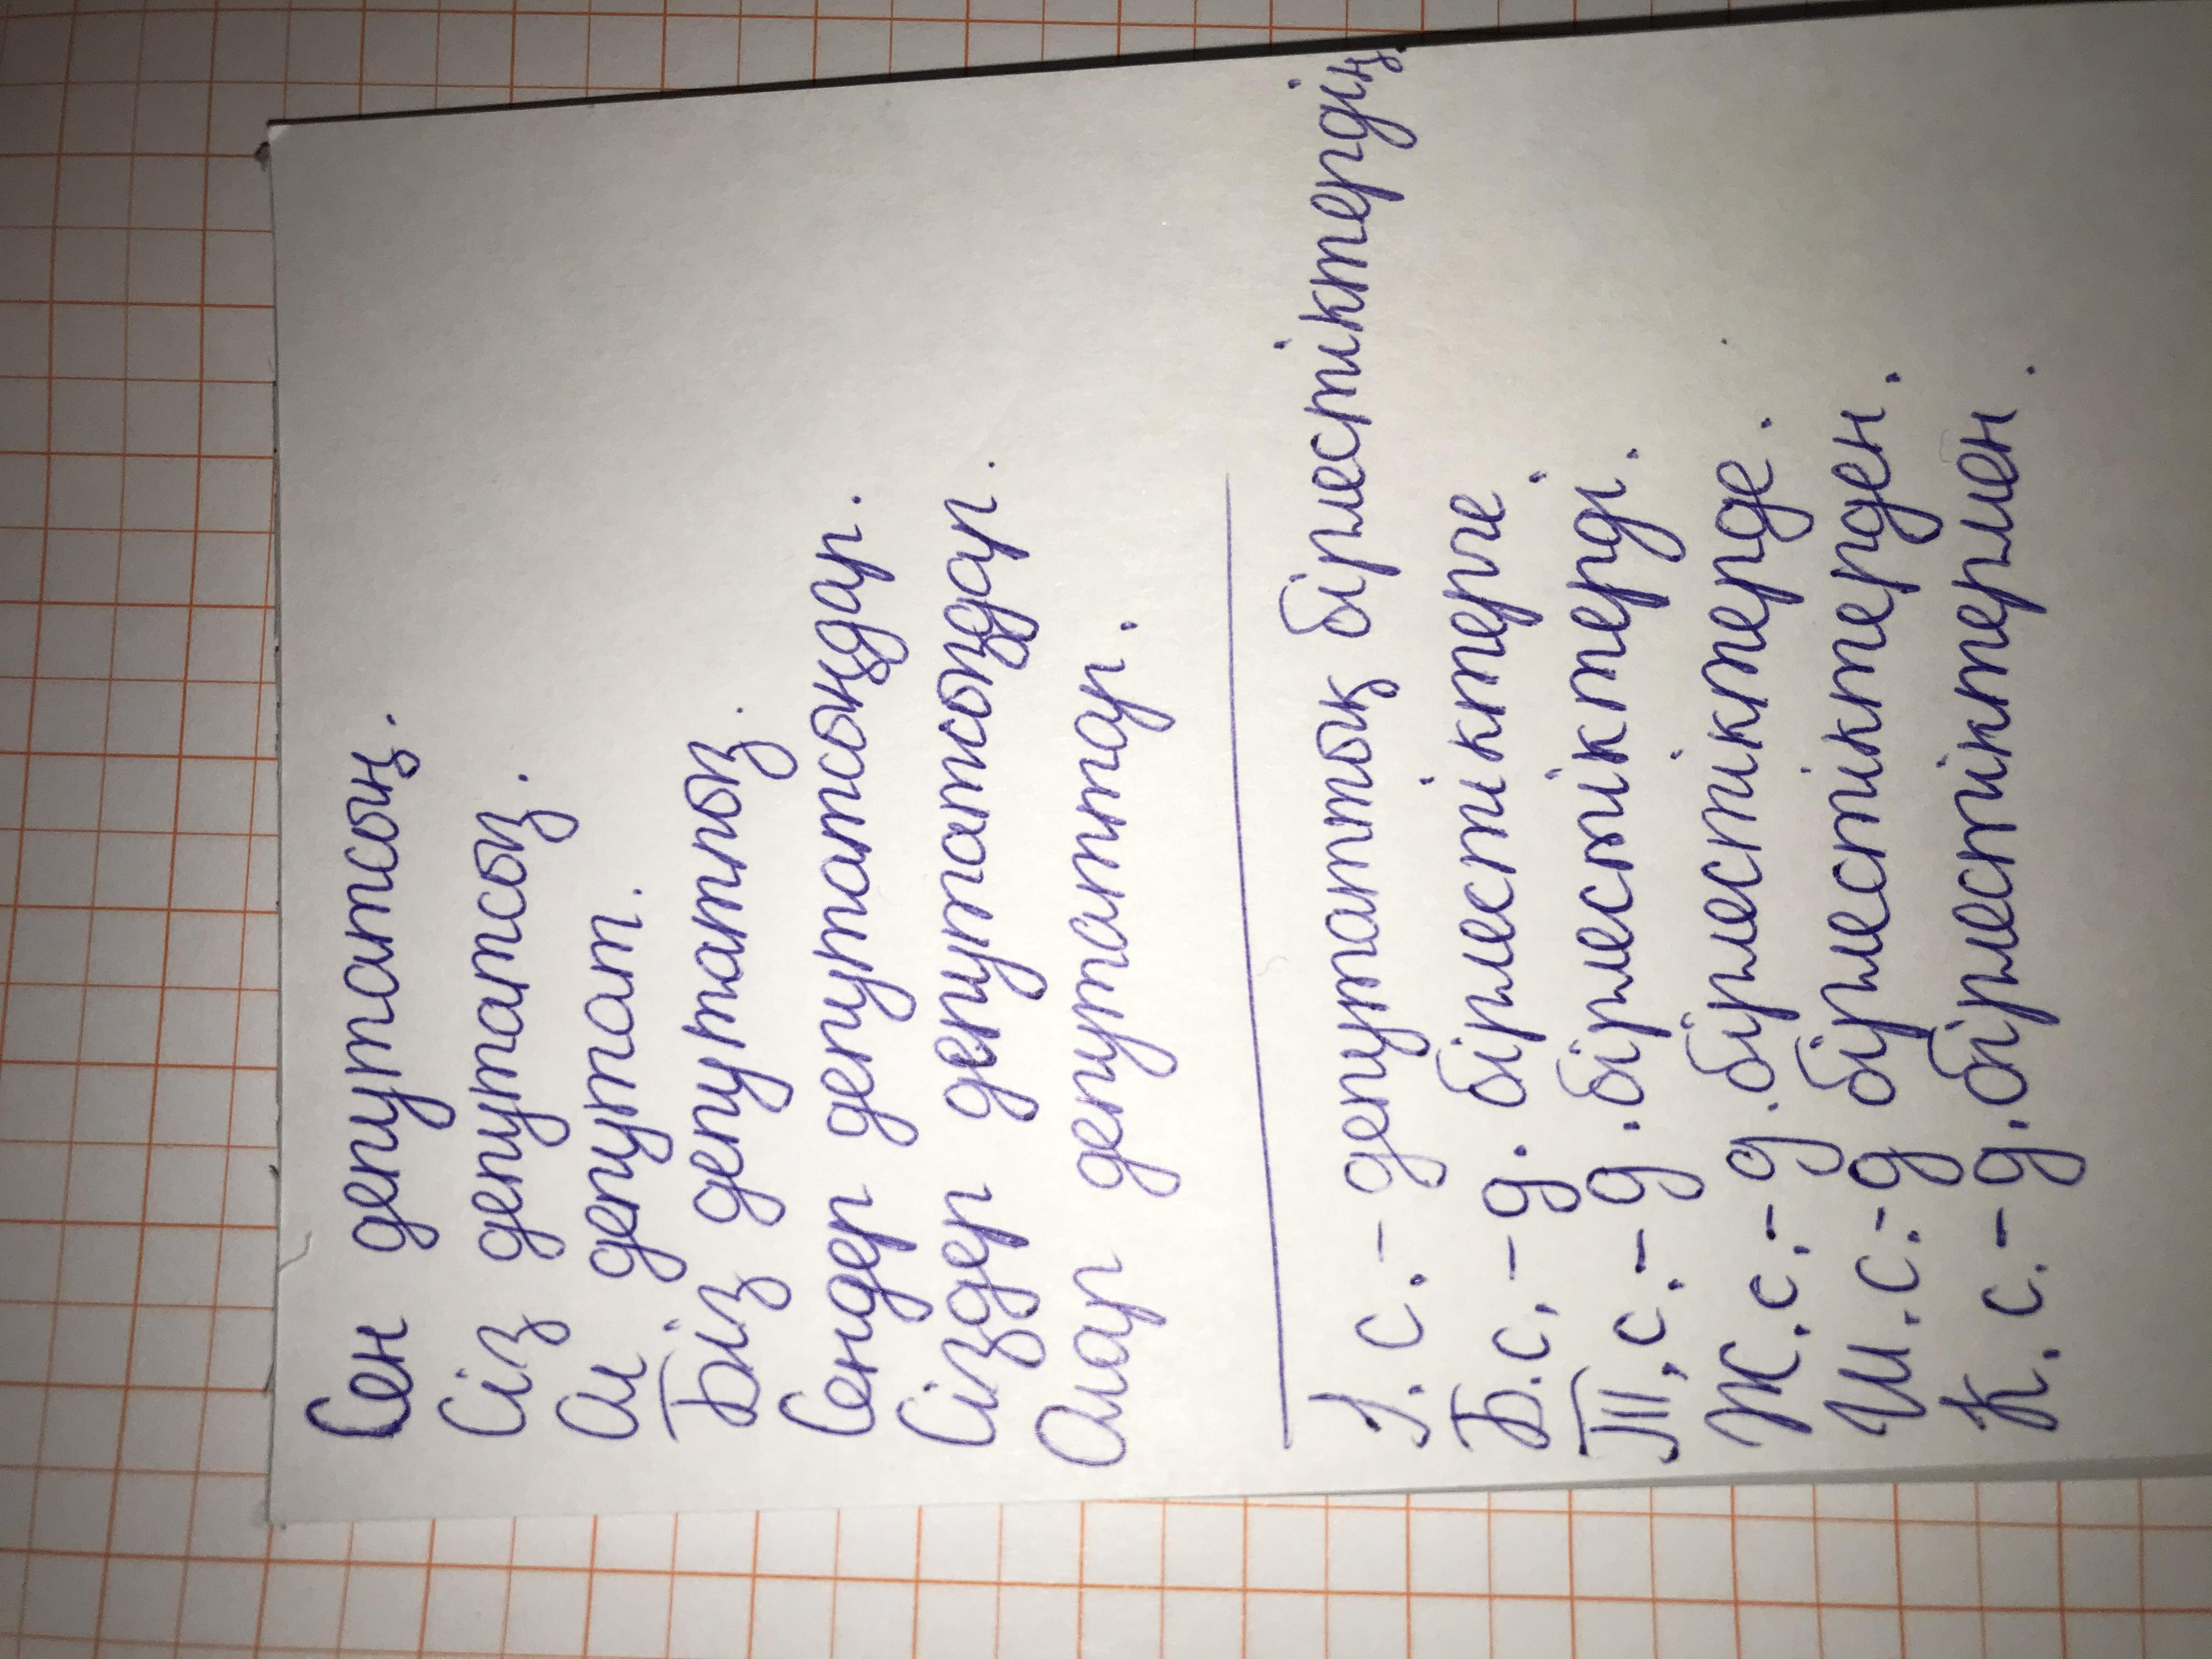 Сен депутатсың.
Сіз депутатсыз.
Ол депутат.
Біз депутатпыз.
Сендер депутатсыңдар.
Сіздер депутатсыздар.
Олар депутаттар.
І.с. - депутаттық бірлестіктердің
Б.с. - д. бірлестіктерге
Т.с. - д. бірлестіктерді.
Ж.с. - д. бірлестіктерде.
Ш.с. - д бірлестіктерден.
К.с. - д. бірлестіктермен.